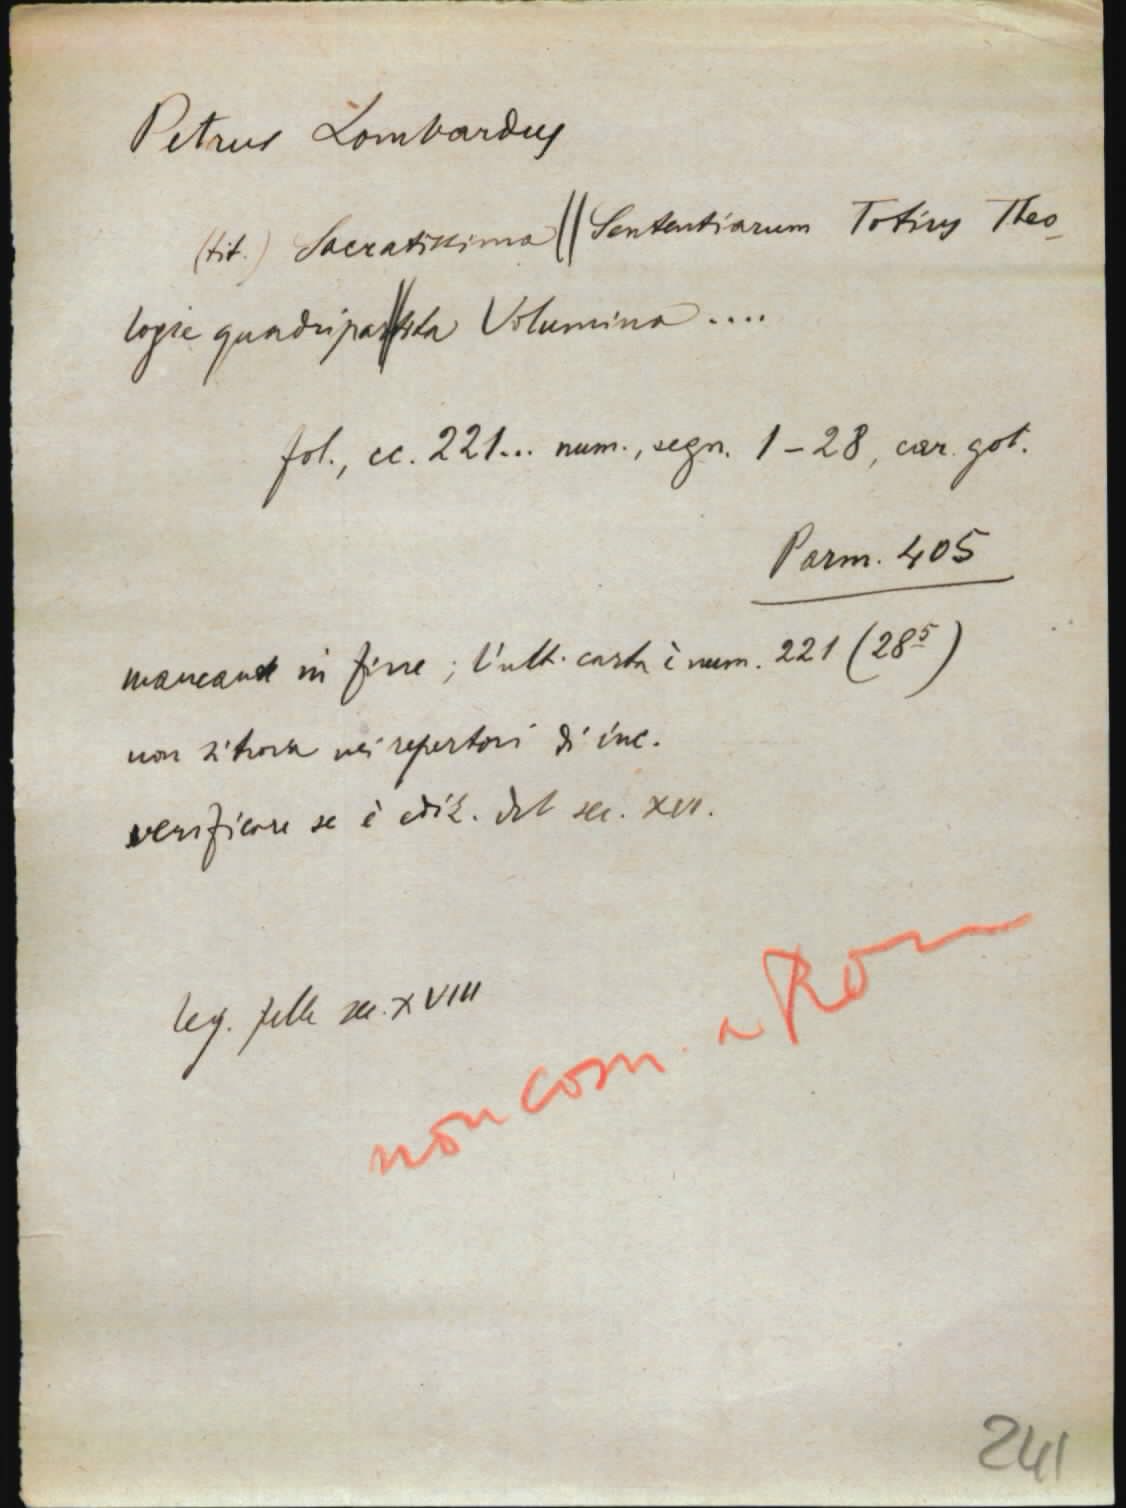 Petrus Lombardus
(tit.) Sacratissima || Sententiarum Totius Theo-
logie quadripar||tita Volumina ....
fol., cc. 221... num., segn. 1-28, car. got.
Parm. 405
mancante in fine; l'ult. carta è num. 221 (28⁵)
non si trova nei repertori di inc.
verificare se è ediz. del sec. XVI.
leg. pelle sec. XVIII
non com. a Rom
241